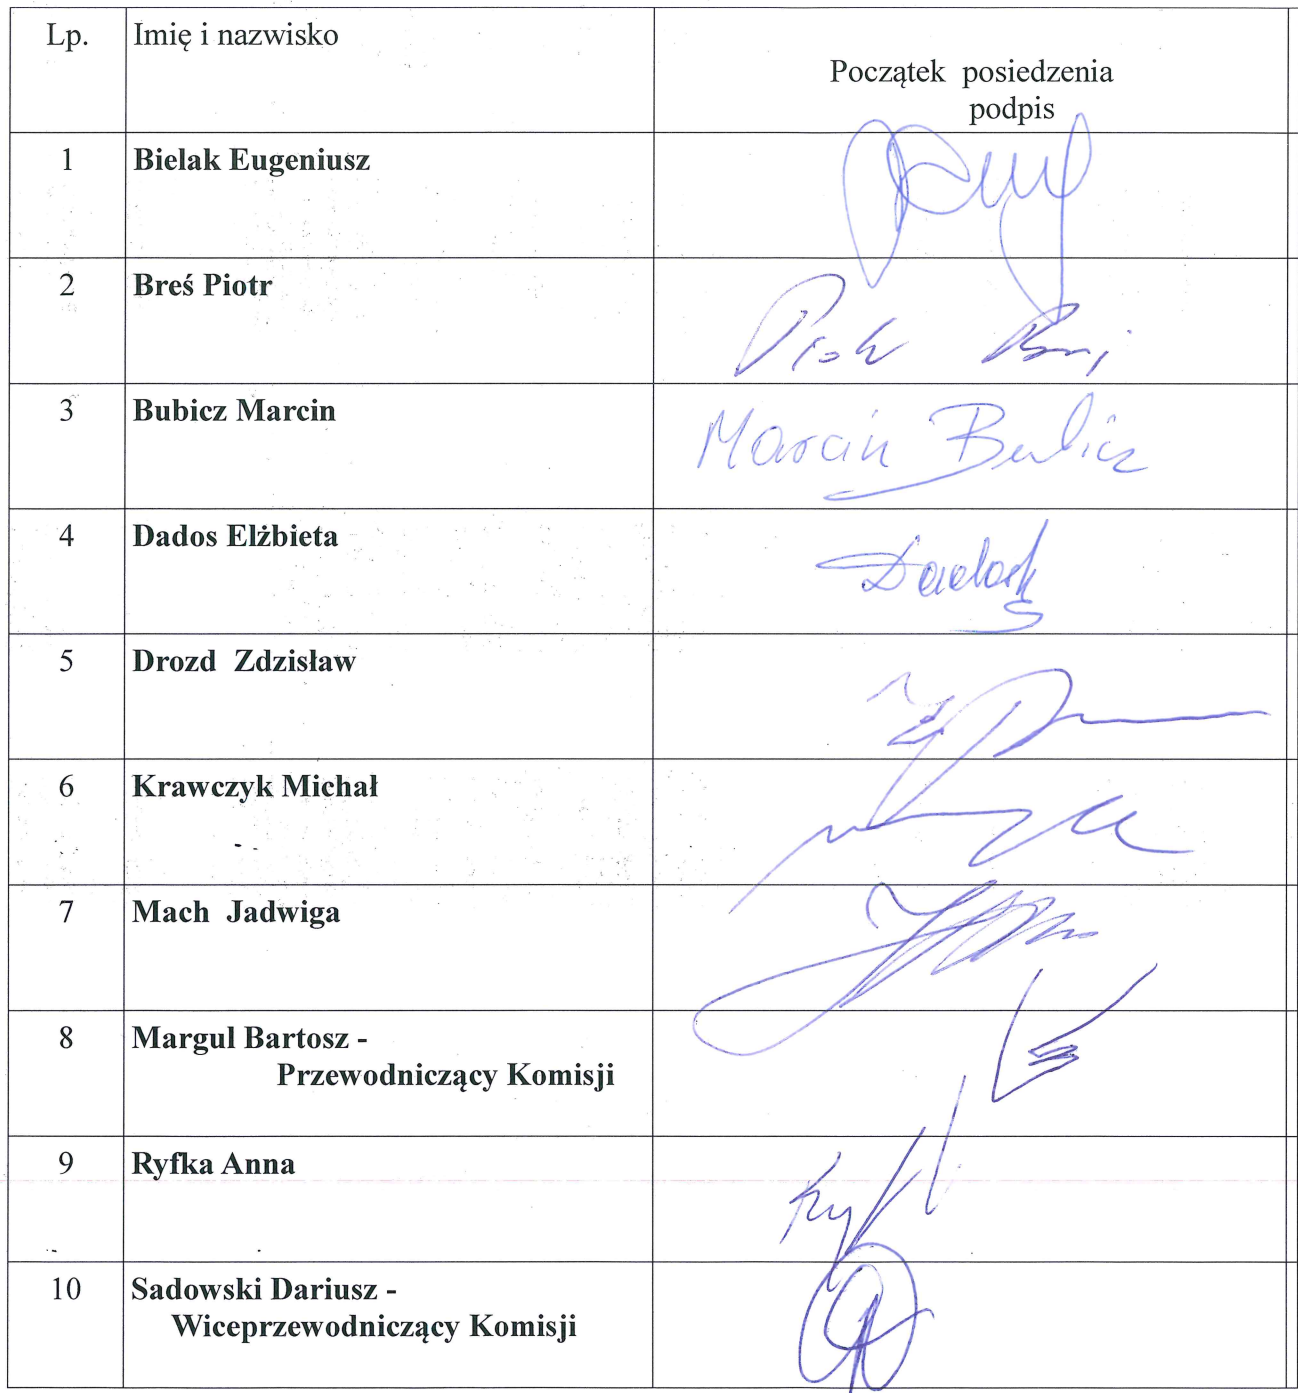 Lp. Imię i nazwisko
Początek posiedzenia
podpis
1 Bielak Eugeniusz
2 Breś Piotr
Piotr
3 Bubicz Marcin
Marcin Bubicz
4 Dados Elżbieta
Dados
5 Drozd Zdzisław
6 Krawczyk Michał
7 Mach Jadwiga
8 Margul Bartosz -
Przewodniczący Komisji
9 Ryfka Anna
10 Sadowski Dariusz -
Wiceprzewodniczący Komisji